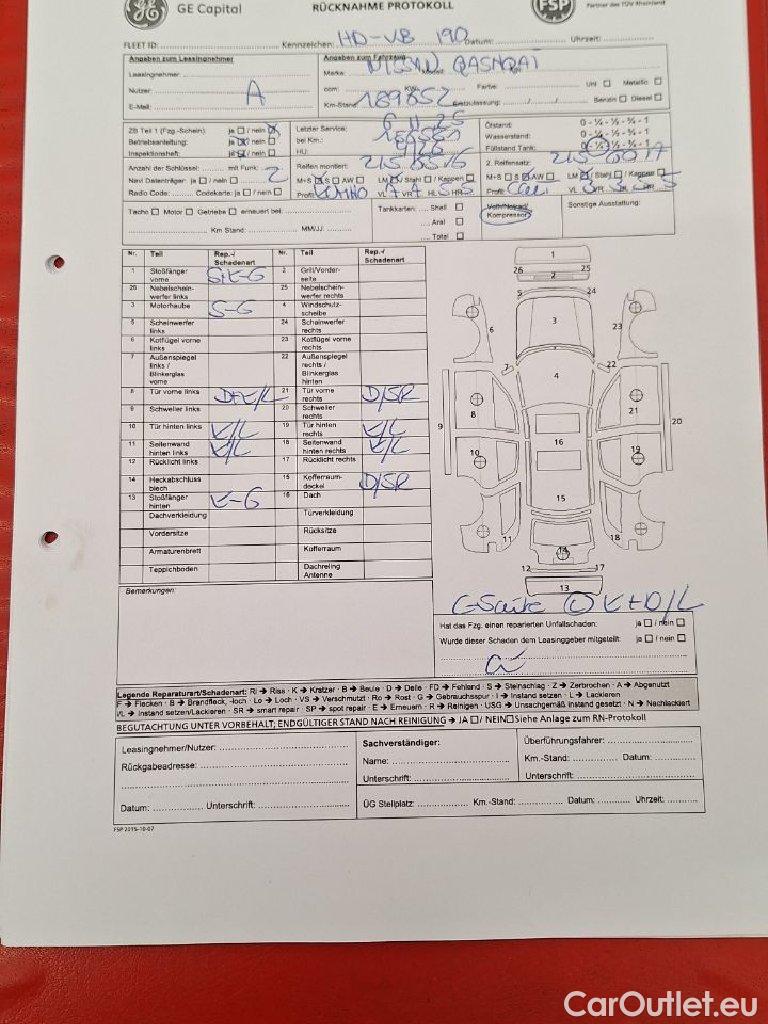 GE Capital RÜCKNAHME PROTOKOLL FSP Partner des TÜV Rheinland
FLEET ID: Kennzeichen: HD-VB 190 Datum: Uhrzeit:
Angaben zum Leasingnehmer Angaben zum Fahrzeug
Leasingnehmer: Marke: NISSAN QASHQAI
Nutzer: A ccm: KW: Farbe: Uni Metallic
E-Mail: Km-Stand: 189652 Erstzulassung: / / Benzin Diesel
ZB Teil 1 (Fzg.-Schein): ja / nein Letzter Service: Ölstand: 0 - ¼ - ½ - ¾ - 1
Betriebsanleitung: ja / nein bei Km.: Wasserstand: 0 - ¼ - ½ - ¾ - 1
Inspektionsheft: ja / nein HU: Füllstand Tank: 0 - ¼ - ½ - ¾ - 1
Anzahl der Schlüssel: mit Funk: 2 Reifen montiert: 2. Reifensatz:
Navi Datenträger: ja / nein M+S S AW LM / Stahl / Kappen M+S S AW LM / Stahl / Kappen
Radio Code: Codekarte: ja / nein Profil: VL VR HL HR Profil: VL
Tacho Motor Getriebe erneuert bei: Tankkarten: Shell Kompressor Sonstige Ausstattung:
Km Stand: MM/JJ: Aral
Total
Nr. Teil Rep.-/ Schadenart Nr. Teil Rep.-/ Schadenart
1 Stoßfänger vorne 2 Grill/Vorderseite
26 Nebelscheinwerfer links 25 Nebelscheinwerfer rechts
3 Motorhaube S-G 4 Windschutzscheibe
5 Scheinwerfer links 24 Scheinwerfer rechts
6 Kotflügel vorne links 23 Kotflügel vorne rechts
7 Außenspiegel links / Blinkerglas vorne 22 Außenspiegel rechts / Blinkerglas hinten
8 Tür vorne links D+K/L 21 Tür vorne rechts D/SR
9 Schweller links 20 Schweller rechts
10 Tür hinten links K/L 19 Tür hinten rechts K/L
11 Seitenwand hinten links K/L 18 Seitenwand hinten rechts K/L
12 Rücklicht links 17 Rücklicht rechts
14 Heckabschlussblech 15 Kofferraumdeckel D/SR
13 Stoßfänger hinten K-G 16 Dach
Dachverkleidung Türverkleidung
Vordersitze Rücksitze
Armaturenbrett Kofferraum
Teppichboden Dachreling Antenne
1
26 2 25
5 24
6 3 23
7 4 22
8 21
9 20
10 16 19
15
11 14 18
12 17
13
Bemerkungen:
K+D/L
Hat das Fzg. einen reparierten Unfallschaden: ja / nein
Wurde dieser Schaden dem Leasinggeber mitgeteilt: ja / nein
Legende Reparaturart/Schadenart: Ri → Riss · K → Kratzer · B → Beule · D → Delle · FD → Fehlend · S → Steinschlag · Z → Zerbrochen · A → Abgenutzt
F → Flecken · B → Brandfleck, -loch · Lo → Loch · VS → Verschmutzt · Ro → Rost · G → Gebrauchsspur · I → Instand setzen · L → Lackieren
I/L → Instand setzen/Lackieren · SR → smart repair · SP → spot repair · E → Erneuern · R → Reinigen · USG → Unsachgemäß instand gesetzt · N → Nachlackiert
BEGUTACHTUNG UNTER VORBEHALT; ENDGÜLTIGER STAND NACH REINIGUNG → JA / NEIN Siehe Anlage zum RN-Protokoll
Leasingnehmer/Nutzer: Sachverständiger: Überführungsfahrer:
Rückgabeadresse: Name: Km.-Stand: Datum:
Unterschrift: Unterschrift:
Datum: Unterschrift: ÜG Stellplatz: Km.-Stand: Datum: Uhrzeit:
CarOutlet.eu